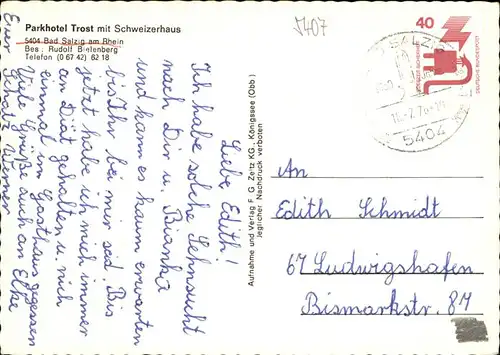 Parkhotel Trost mit Schweizerhaus
5404 Bad Salzig am Rhein
Bes: Rudolf Bielenberg
Telefon (0 67 42) 62 18
5407
40
DEUTSCHE BUNDESPOST
SALZIG
5404
Aufnahme und Verlag F. G. Zeitz KG., Königssee (Obb.)
Jeglicher Nachdruck verboten
Liebe Edith!
Ich habe solche Sehnsucht
nach Dir u. Bianka
und kann es kaum erwarten
bis Ihr bei mir seid. Bis
jetzt habe ich mich immer
an Diät gehalten u. nich
einmal im Gasthaus gegessen
Viele Grüße auch an Elke
Euer Schatz Werner
An
Edith Schmidt
67 Ludwigshafen
Bismarkstr. 87